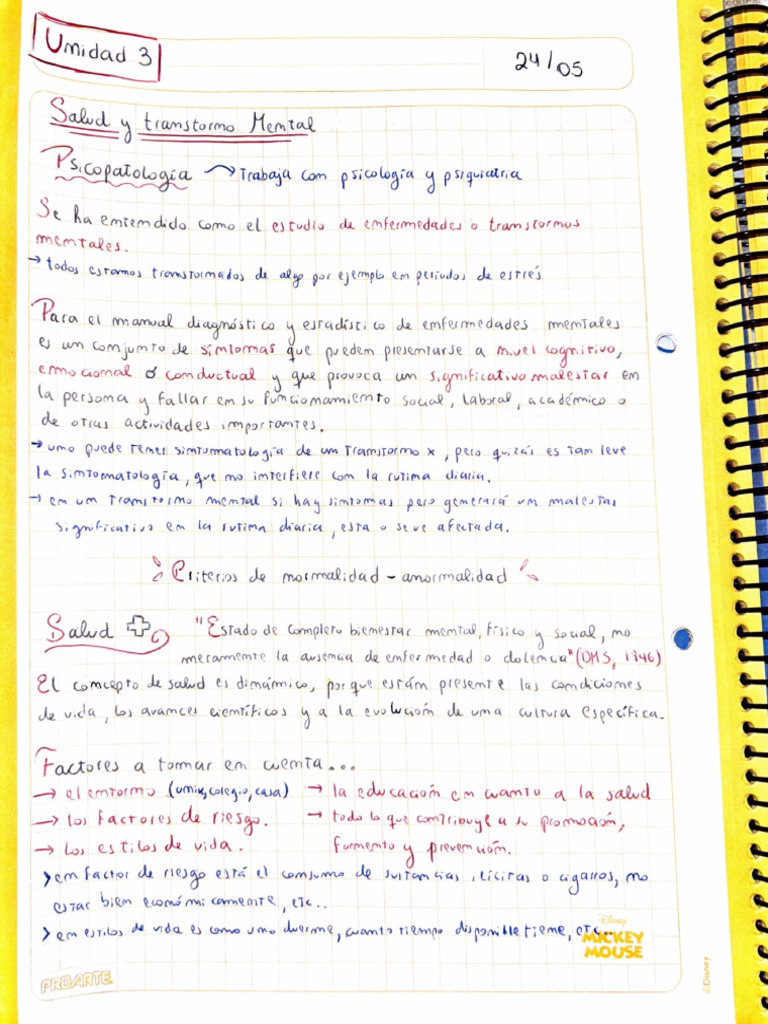 Unidad 3
24/05
Salud y transtorno Mental
Psicopatología → Trabaja con psicología y psiquiatria
Se ha entendido como el estudio de enfermedades o transtornos
mentales.
→ todos estamos transtornados de algo por ejemplo en periodos de estrés
Para el manual diagnóstico y estadístico de enfermedades mentales
es un conjunto de síntomas que pueden presentarse a nivel cognitivo,
emocional o conductual y que provoca un significativo malestar en
la persona y fallar en su funcionamiento social, laboral, académico o
de otras actividades importantes.
→ uno puede tener sintomatología de un transtorno x, pero quizás es tan leve
la sintomatología, que no interfiere con la rutina diaria.
→ en un transtorno mental si hay sintomas pero generará un malestar
significativo en la rutina diaria, esta o se ve afectada.
Criterios de normalidad - anormalidad
Salud "Estado de completo bienestar mental, físico y social, no
meramente la ausencia de enfermedad o dolencia" (OMS, 1946)
El concepto de salud es dinámico, porque están presente las condiciones
de vida, los avances científicos y a la evolución de una cultura específica.
Factores a tomar en cuenta...
→ el entorno (univ, colegio, casa) → la educación en cuanto a la salud
→ los factores de riesgo. → todo lo que contribuye a su promoción,
→ los estilos de vida. fomento y prevención.
> en factor de riesgo está el consumo de sustancias ilícitas o cigarros, no
estar bien económicamente, etc..
> en estilos de vida es como uno duerme, cuanto tiempo disponible tiene, etc...
Disney
MICKEY
MOUSE
PROARTE
©Disney